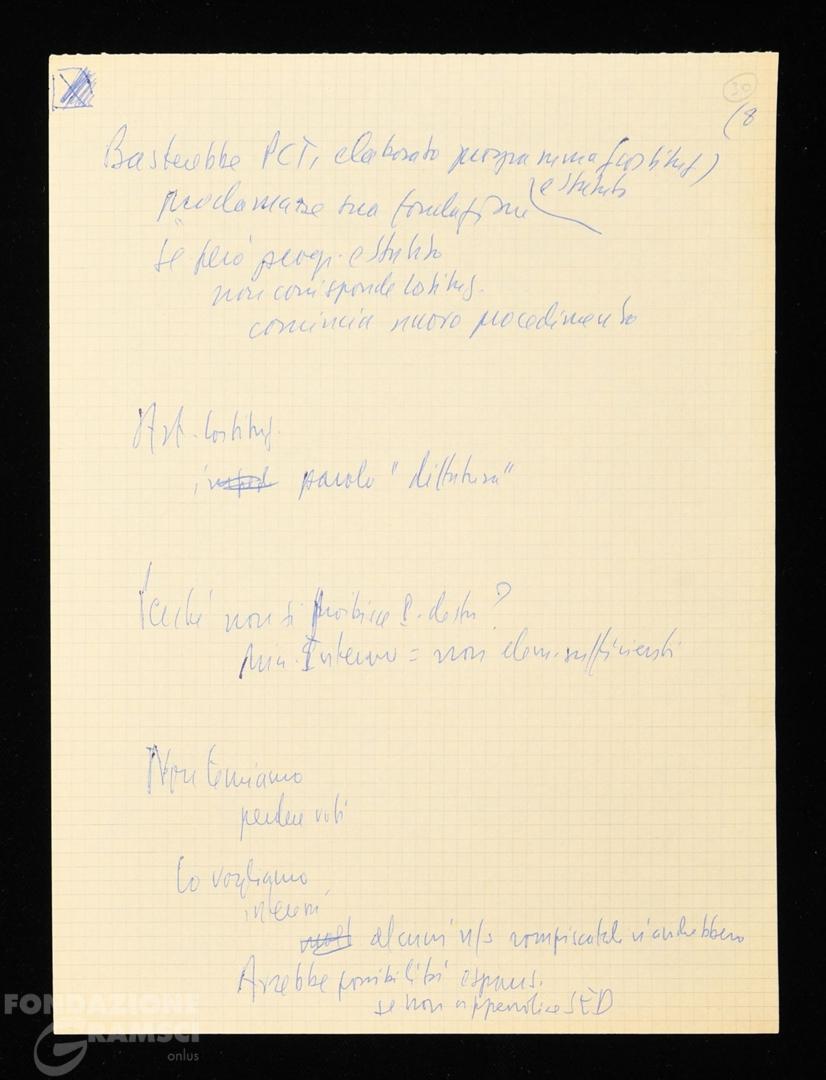 30
(8
Basterebbe PCT, elaborato programma (costituz)
e statuto
proclamare sua fondazione
se però progr. e statuto
non corrisponde costituz.
comincia nuovo procedimento
Art. costituz.
parola "dittatura"
Perché non si proibisce P. destra?
Min. Interno = non elem. sufficienti
Non temiamo
perdere voti
Lo vogliamo
interni
alcuni n/s rompiscatole n'andrebbero
Avrebbe possibilità espans.
se non appendice SED
FONDAZIONE
GRAMSCI
onlus